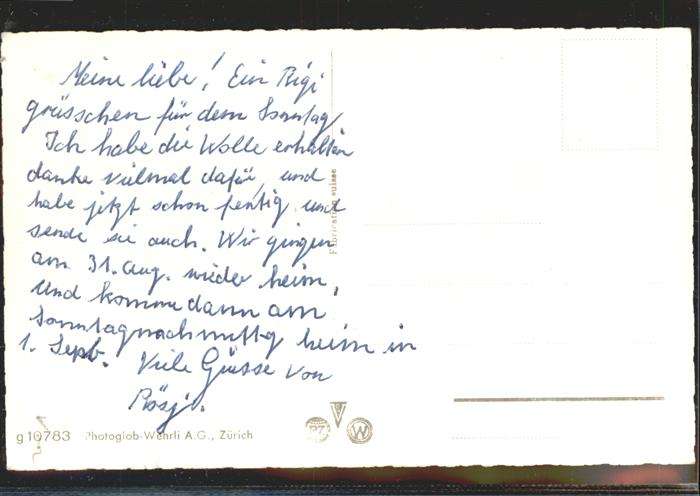 Meine liebe! Ein Rigi
grüsschen für dem Sonntag
Ich habe die Wolle erhalten
danke vielmal dafür, und
habe jetzt schon fertig und
sende sie auch. Wir gingen
am 31. Aug. wieder heim,
Und komme dann am
Sonntagnachmittag heim in
1. Sept. Viele Grüsse von
Rösj.
Fabrication suisse
g 10783 Photoglob-Wehrli A.G., Zürich
PZ W